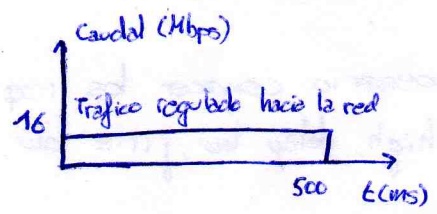 Caudal (Mbps)
Tráfico regulado hacia la red
16
500
t(ms)